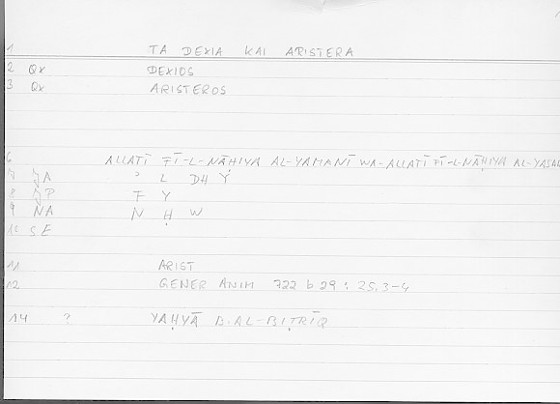 1 TA DEXIA KAI ARISTERA
2 Qx DEXIOS
3 Qx ARISTEROS
6 ALLATĪ FĪ-L-NĀḤIYA AL-YAMANĪ WA-ALLATĪ FĪ-L-NĀḤIYA AL-YASA
7 NA ʾ L DH Y
8 NP F Y
9 NA N Ḥ W
10 SE
11 ARIST
12 GENER ANIM 722 b 29 : 25,3-4
14 ? YAḤYĀ B. AL-BIṬRĪQ